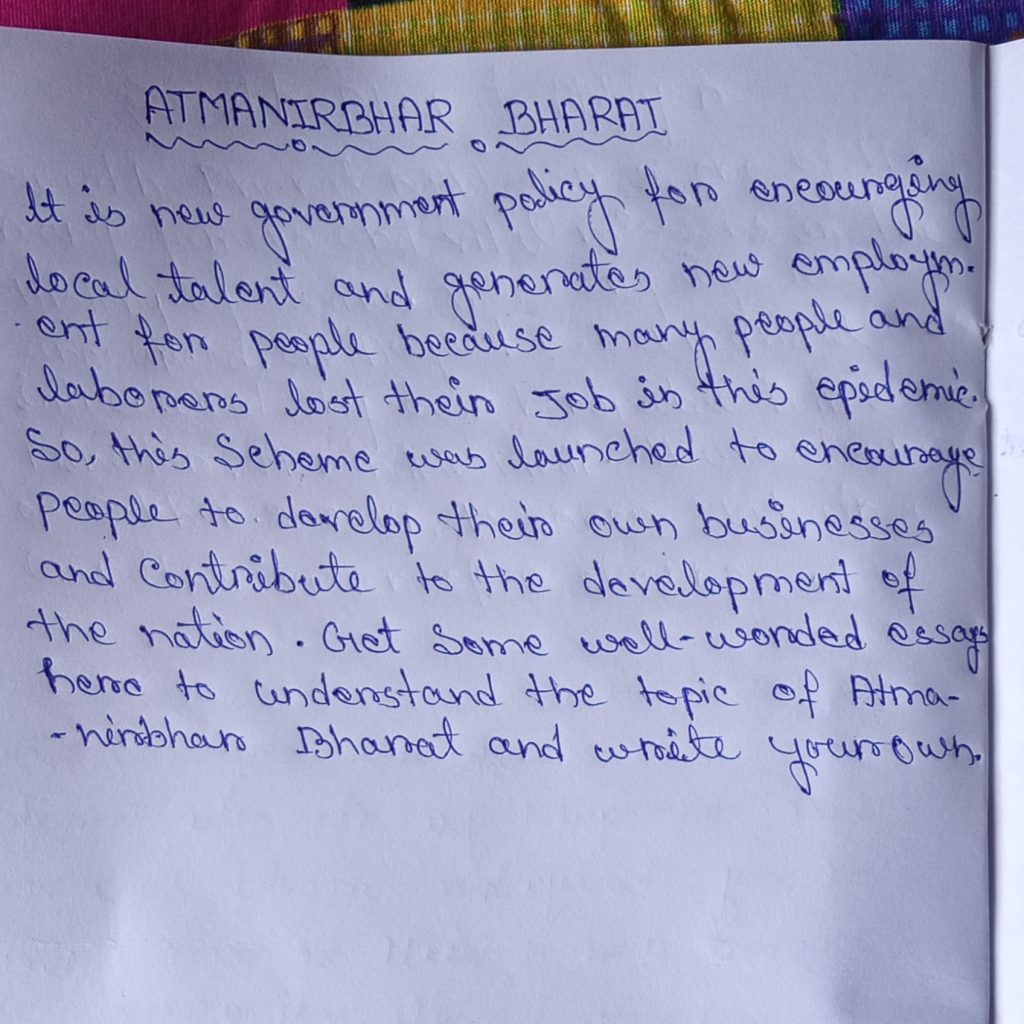 ATMANIRBHAR BHARAT
It is new government policy for encourging
local talent and generates new employm-
ent for people because many people and
laborers lost their Job in this epidemic.
So, this Scheme was launched to encourage
people to develop their own businesses
and Contribute to the development of
the nation. Get Some well-worded essays
here to understand the topic of Atma-
-nirbhar Bharat and write your own.